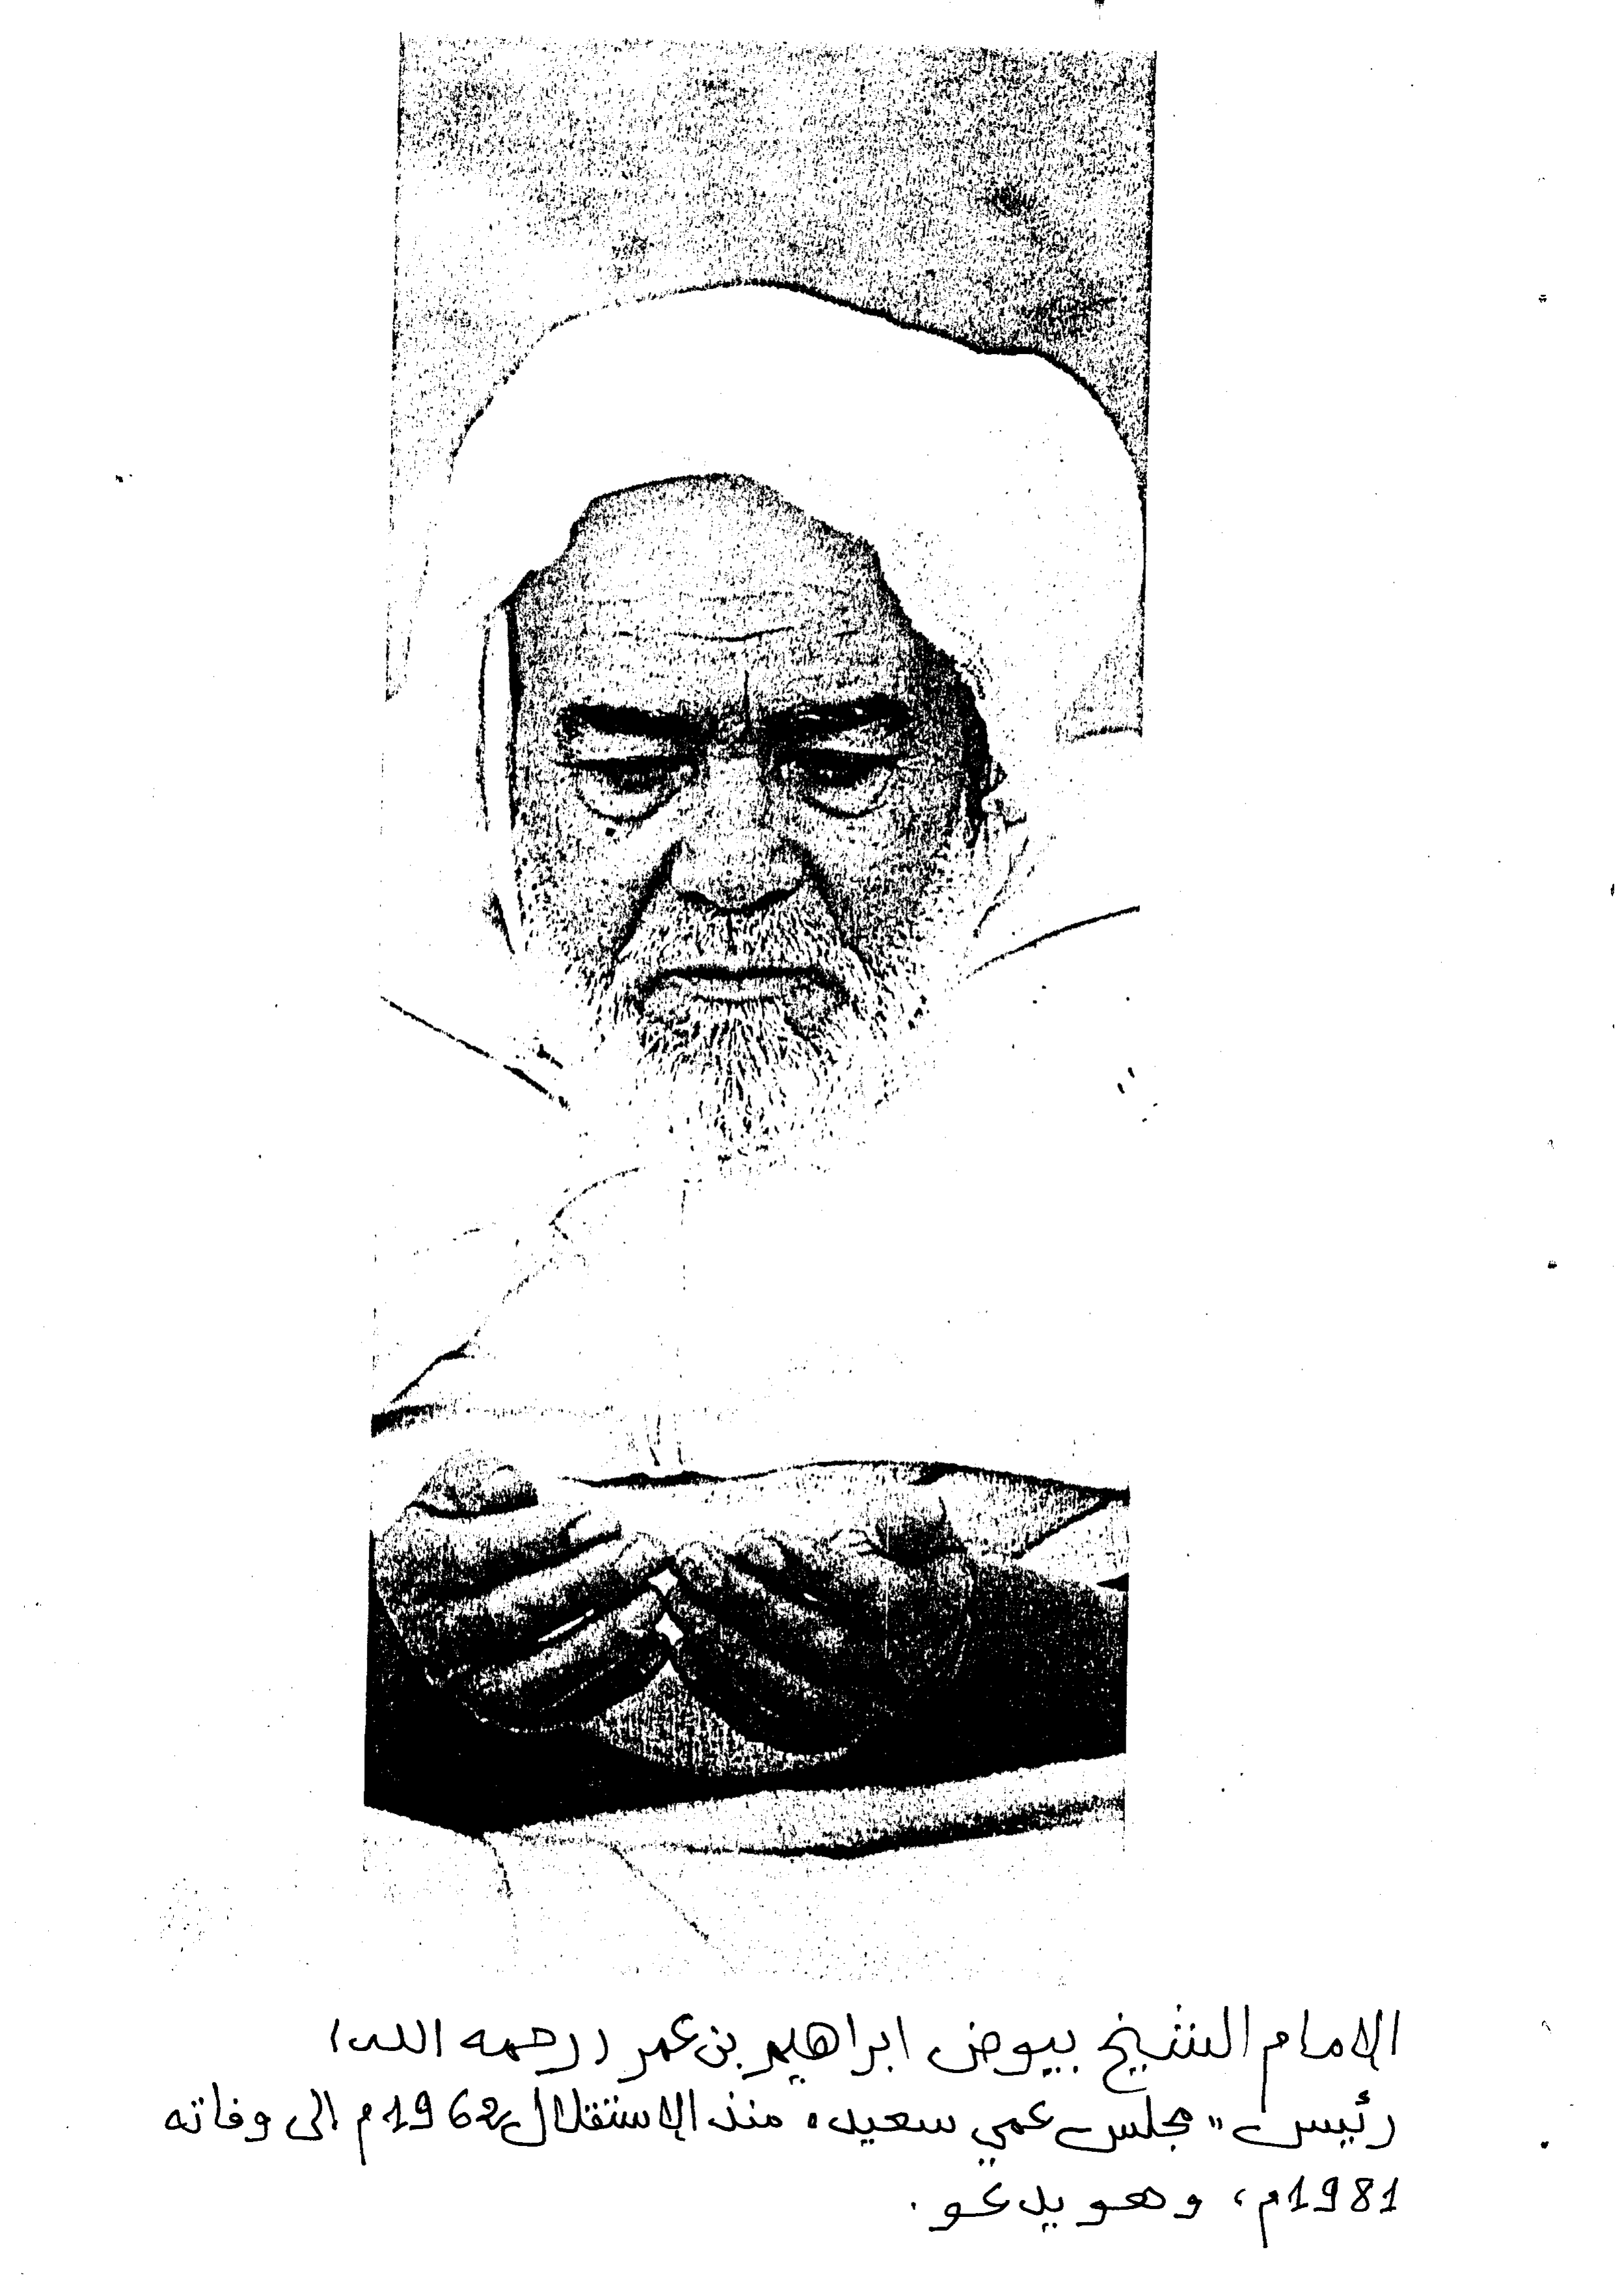 الامام الشيخ بيوض ابراهيم بن عمر (رحمه الله)
رئيس "مجلس عمي سعيد" منذ الاستقلال 1962م الى وفاته
1981م، وهو يدعو.